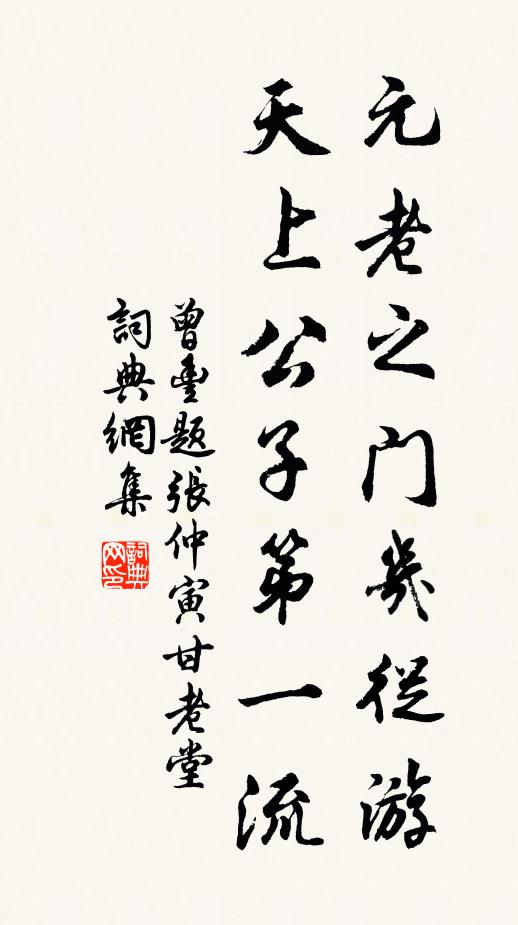 元老之门幾從游
天上公子第一流
曾豊題張仲寅甘老堂
詞典網集
詞典网印